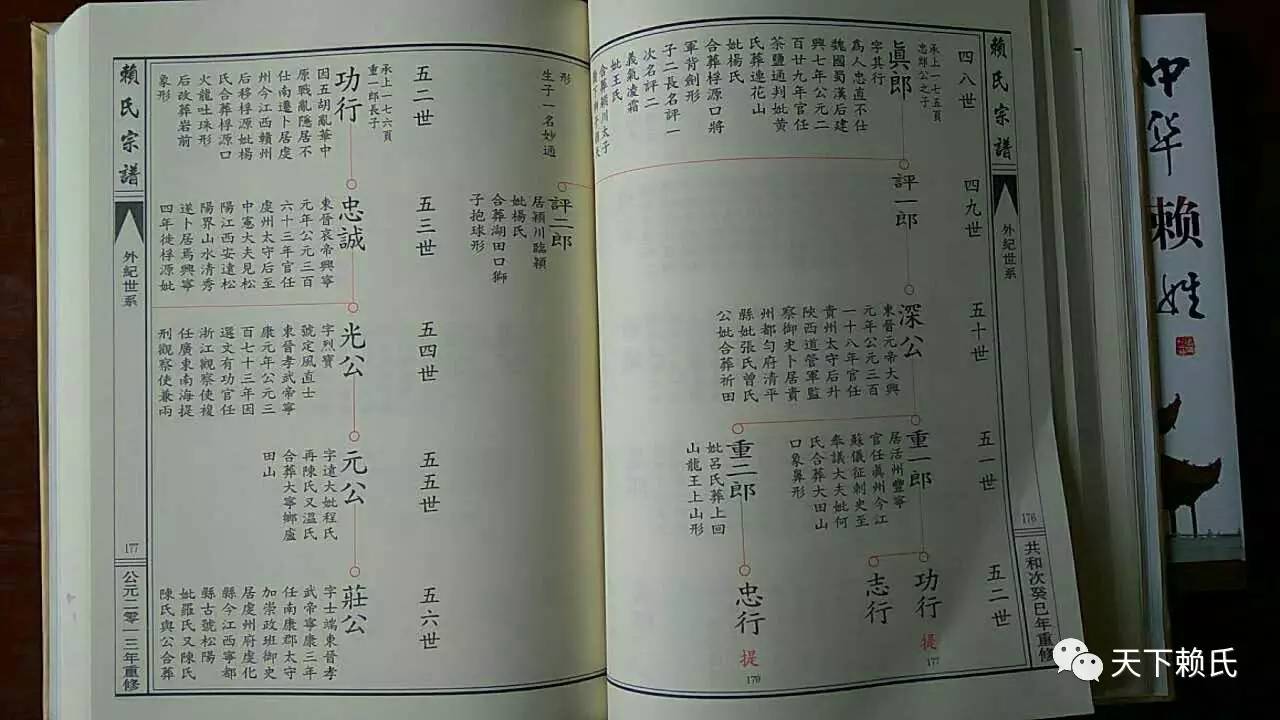 賴氏宗譜
外紀世系
176
共和次癸巳年重修
四八世
承上一七五頁
忠郎公之子
眞郎
字其行
為人忠直不仕
魏國蜀漢后建
興七年公元二
百廿九年官任
茶鹽通判妣黄
氏葬連花山
妣楊氏
合葬桴源口將
軍背劍形
子二長名評一
次名評二
義氣凌霜
妣王氏
合葬潁川太子
四九世
評一郎
五十世
深公
東晉元帝大興
元年公元三百
一十八年官任
貴州太守后升
陝西道管軍監
察御史卜居貴
州都勻府清平
縣妣張氏曾氏
公妣合葬祈田
五一世
重一郎
居活州豐寧
官任眞州今江
蘇儀征刺史至
奉議大夫妣何
氏合葬大田山
口象鼻形
重二郎
妣呂氏葬上回
山龍王上山形
五二世
功行
提
177
志行
忠行
提
179
形
生子一名妙通
評二郎
居潁川臨潁
妣楊氏
合葬湖田口獅
子抱球形
五二世
承上一七六頁
重一郎長子
功行
因五胡亂華中
原戰亂隐居不
仕南遷卜居虔
州今江西贛州
后移桴源妣楊
氏合葬桴源口
火龍吐珠形
后改葬岩前
象形
五三世
忠誠
東晉哀帝興寧
元年公元三百
六十三年官任
虔州太守后至
中憲大夫見松
陽江西安遠松
陽界山水清秀
遂卜居焉興寧
四年徙桴源妣
五四世
光公
字烈寶
號定風直士
東晉孝武帝寧
康元年公元三
百七十三年因
選文有功官任
浙江觀察使複
任廣東南海提
刑觀察使兼兩
五五世
元公
字遠大妣程氏
再陳氏又溫氏
合葬大寧鄉廬
田山
五六世
莊公
字士端東晉孝
武帝寧康三年
任南康郡太守
加崇政班御史
居虔州府虔化
縣今江西寧都
縣古號松陽
妣羅氏又陳氏
陳氏與公合葬
賴氏宗譜
外紀世系
177
公元二零一三年重修
中华赖姓
天下赖氏